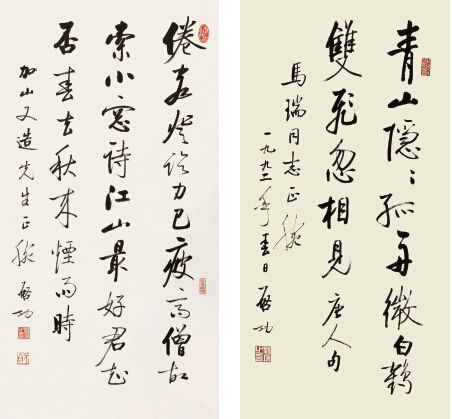 倦客登臨力已疲高僧故
索小窓詩江山最好君知
否春去秋來煙雨時
加山又造先生正腕 啟功
青山隱〻孤舟微白鶴
雙飛忽相見 唐人句
馬瑞同志正腕
一九九二年春日 啟功